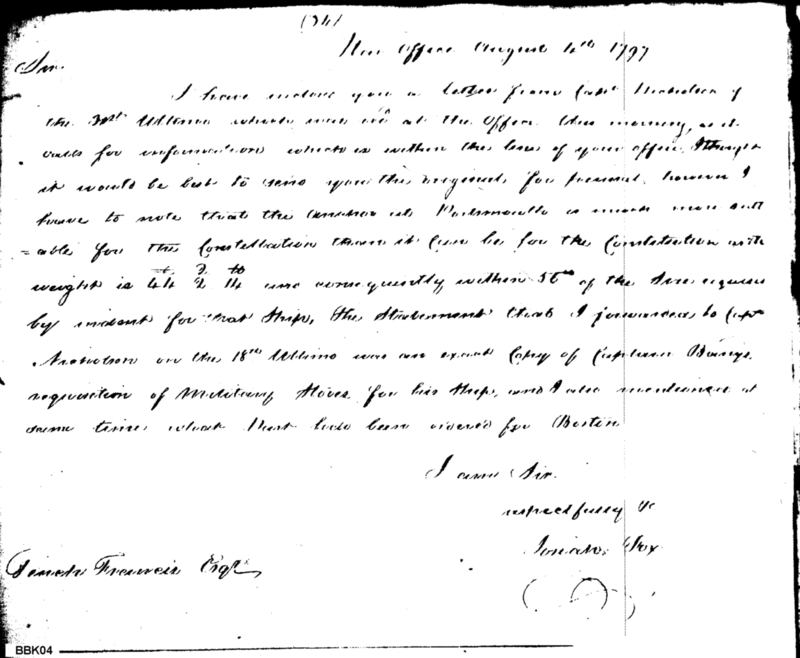 (34)
War Office August 4th 1797
Sir.
I have inclosed you a letter from Capt Nicholson of
the 31st Ultimo which was recd at the Office this morning, as it
calls for information which is within the line of your office I thought
it would be best to send you the original for perusal, however I
have to note that the anchor at Portsmouth is much more suit
=able for the Constellation than it can be for the Constitution its
weight is 44 2 14 and consequently within 56 of the size
by indent for that Ship, the Statement that I forwarded to Capt
Nicholson on the 18th Ultimo was an exact Copy of Captain Barrys
requisition of Military Stores for his Ship, and I also mentioned at
same time what Part had been ordered for Boston
I am Sir.
respectfully &c
Fox
Tench Francis Esqr
BBK04